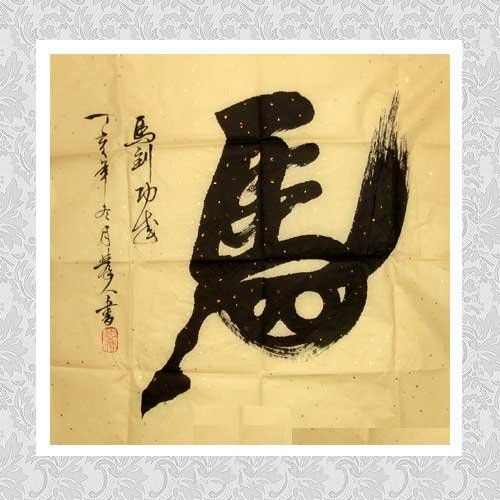 馬
馬到功成
丁亥年冬月人書